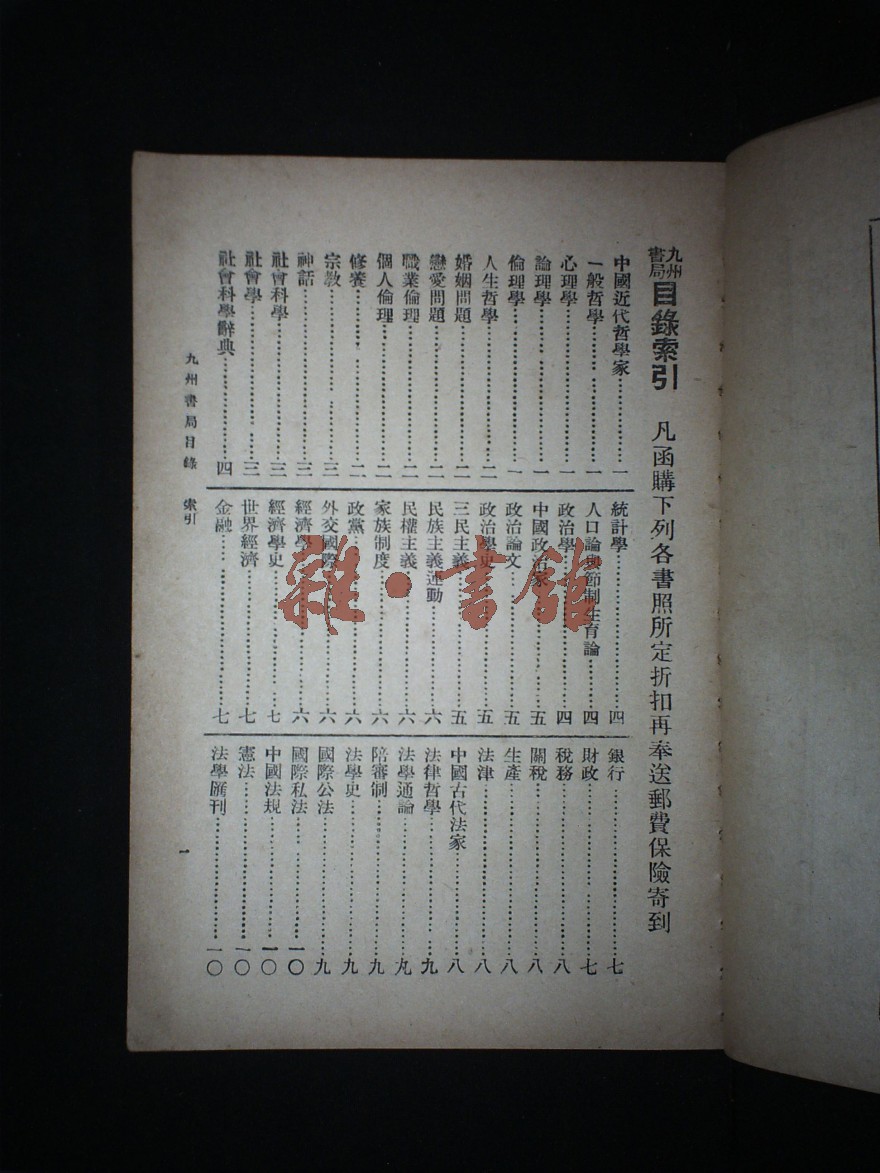 九州書局目錄索引　凡函購下列各書照所定折扣再奉送郵費保險寄到
中國近代哲學家……一
一般哲學……一
心理學……一
論理學……一
倫理學……一
人生哲學……二
婚姻問題……二
戀愛問題……二
職業倫理……二
個人倫理……二
修養……二
宗教……三
神話……三
社會科學……三
社會學……三
社會科學辭典……四
統計學……四
人口論與節制生育論……四
政治學……四
中國政治家……五
政治論文……五
政治學史……五
三民主義……五
民族主義運動……六
民權主義……六
家族制度……六
政黨……六
外交國際……六
經濟學……六
經濟學史……七
世界經濟……七
金融……七
銀行……七
財政……七
稅務……八
關稅……八
生產……八
法津……八
中國古代法家……八
法律哲學……九
法學通論……九
陪審制……九
法學史……九
國際公法……九
國際私法……一〇
中國法規……一〇
憲法……一〇
法學匯刊……一〇
九州書局目錄　索引
一
雜·書館